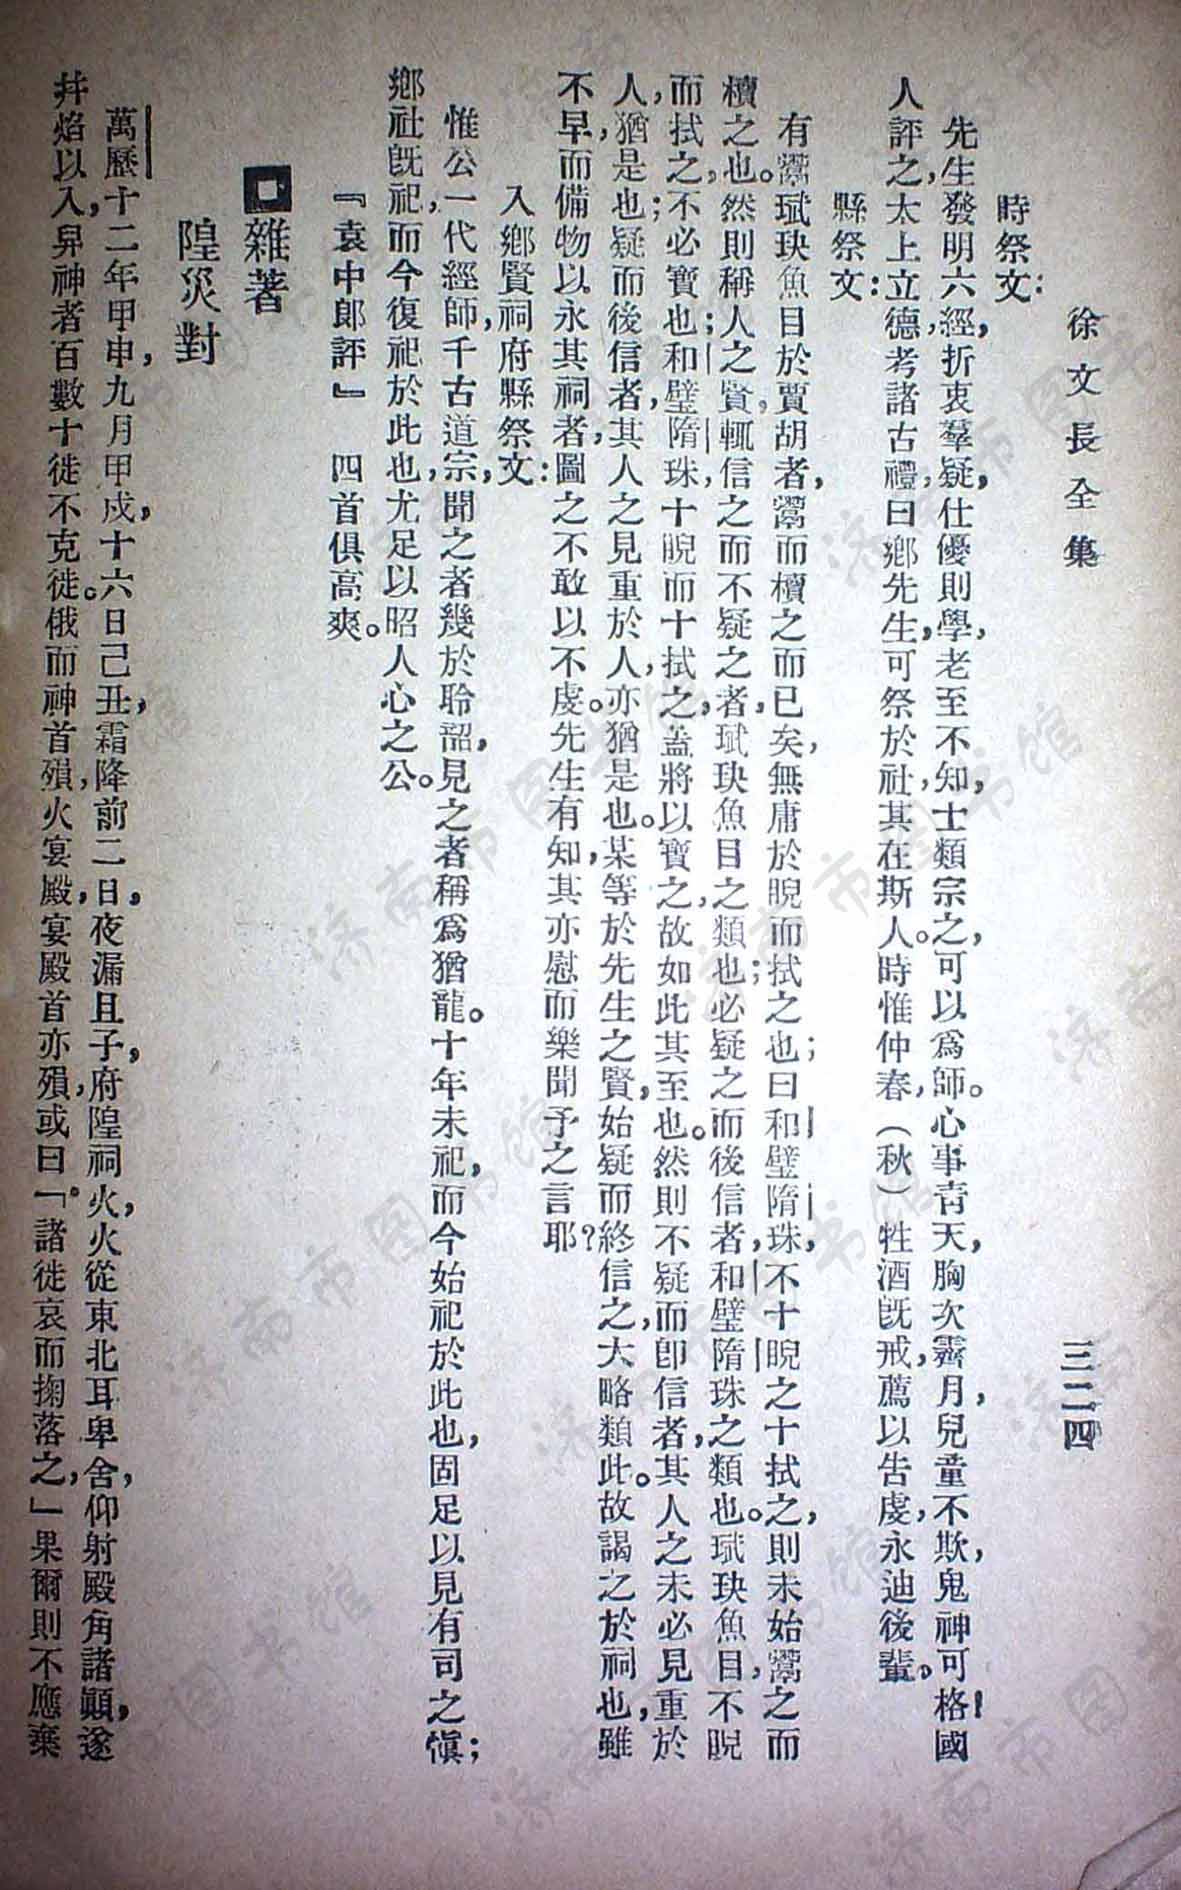 徐文長全集
三二四
時祭文：
先生發明六經，折衷羣疑，仕優則學，老至不知，士類宗之，可以爲師。心事靑天，胸次霽月，兒童不欺，鬼神可格，國
人評之，太上立德，考諸古禮，曰鄕先生，可祭於社，其在斯人。時惟仲春，（秋）牲酒旣戒，薦以告虔，永迪後輩。
縣祭文：
有鬻珷玞魚目於賈胡者，鬻而櫝之而已矣，無庸於睨而拭之也；曰和璧隋珠，不十睨之十拭之，則未始鬻之而
櫝之也。然則稱人之賢，輒信之而不疑之者，珷玞魚目之類也；必疑之而後信者，和璧隋珠之類也。珷玞魚目，不睨
而拭之，不必寶也；和璧隋珠，十睨而十拭之，蓋將以寶之，故如此其至也。然則不疑而卽信者，其人之未必見重於
人，猶是也；疑而後信者，其人之見重於人，亦猶是也。某等於先生之賢，始疑而終信之，大略類此。故謁之於祠也，雖
不早，而備物以永其祠者，圖之不敢以不虔。先生有知，其亦慰而樂聞予之言耶？
入鄕賢祠府縣祭文：
惟公一代經師，千古道宗，聞之者幾於聆韶，見之者稱爲猶龍。十年未祀，而今始祀於此也，固足以見有司之愼；
鄕社旣祀，而今復祀於此也，尤足以昭人心之公。
『袁中郎評』　四首俱高爽。
雜著
隍災對
萬曆十二年甲申，九月甲戌，十六日己丑，霜降前二日，夜漏且子，府隍祠火，火從東北耳卑舍，仰射殿角諸顚，遂
幷焰以入，舁神者百數十徙不克徙。俄而神首殞，火宴殿，宴殿首亦殞，或曰。「諸徒哀而掬落之，」果爾則不應棄